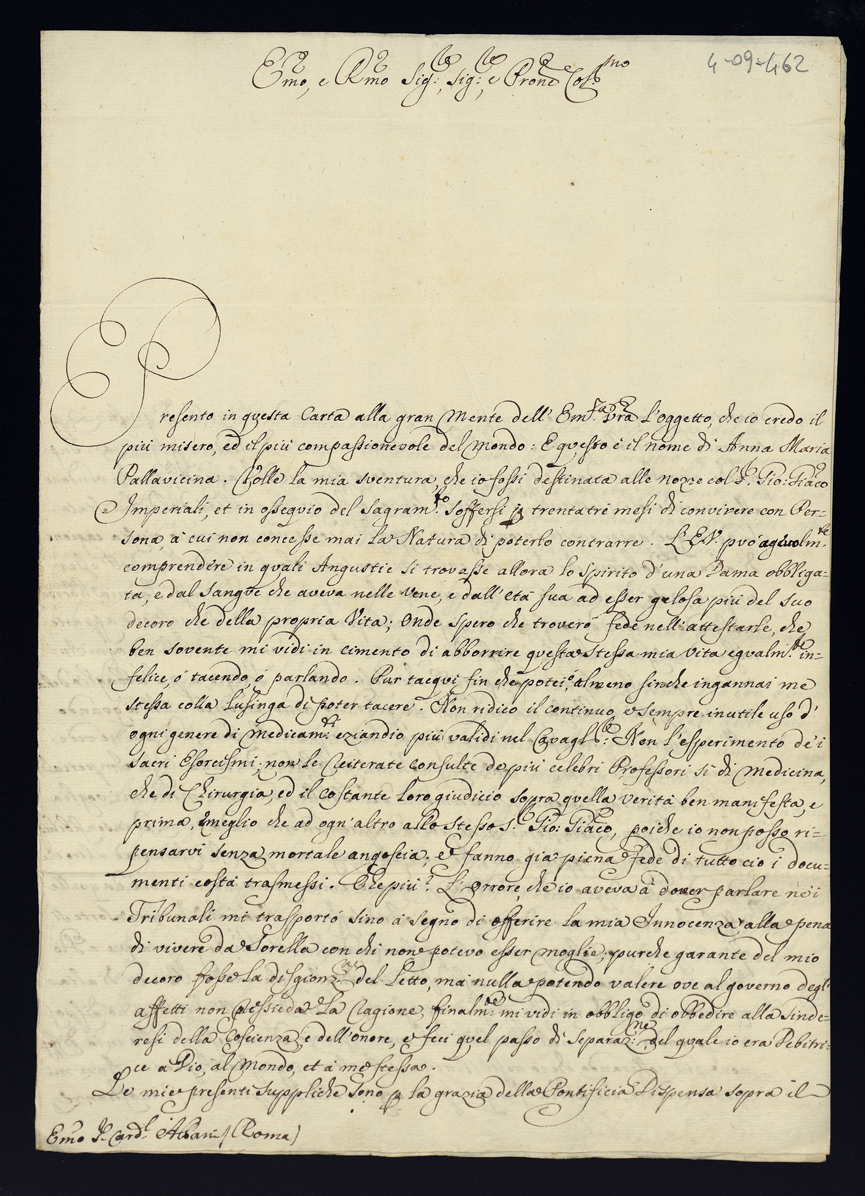 4-09-462
Emo, e Rmo Sig:re, Sig:re e Prone Colmo
Presento in questa Carta alla gran Mente dell' Em:za Vra l'oggetto, che io credo il
più misero, ed il più compassionevole del Mondo: E questo è il nome di Anna Maria
Pallavicina. Volle la mia sventura, che io fossi destinata alle nozze col S.r Gio: Giaco
Imperiali, et in ossequio del Sagram:to soffersi p trentatrè mesi di convivere con Per-
sona, a cui non concesse mai la Natura di poterlo contrarre. L'E.V. può agevolm:te
comprendere in quali Angustie si trovasse allora lo spirito d'una Dama obbliga-
ta, e dal sangue che aveva nelle vene, e dall' età sua ad esser gelosa più del suo
decoro che della propria Vita; Onde spero che troverò fede nell' attestarle, che
ben sovente mi vidi in cimento di abborrire questa stessa mia vita egualm:te in-
felice, ó tacendo, ó parlando. Pur tacqui fin che potei, almeno finche ingannai me
stessa colla lusinga di poter tacere. Non ridico il continuo, e sempre inutile uso d'
ogni genere di Medicam:ti eziandio più validi nel Non l'esperimento de' i
sacri Esorcismi; non le reiterate consulte de più celebri Professori sì di Medicina,
che di Chirurgia, ed il costante loro giudicio sopra quella verità ben manifesta, e
prima, e meglio che ad ogn' altro allo stesso S.r Gio: Giaco, poiche io non posso ri-
pensarvi senza mortale angoscia; e fanno già piena fede di tutto ciò i docu-
menti costà trasmessi. Che più? L'orrore, che io aveva à dover parlare ne' i
Tribunali mi trasportò sino a segno di offerire la mia Innocenza alla pena
di vivere da Sorella con chi non potevo esser moglie, purche garante del mio
decoro fosse la disgionz:ne del Letto, ma nulla potendo valere ove al governo degl'
affetti non risiede la Ragione, finalm:te mi vidi in obbligo di obbedire alla Sinde-
resi della Coscienza, e dell' onore, e feci quel passo di separaz:ne del quale io era Debitri-
ce a Dio, al Mondo, et à me stessa.
Le mie presenti suppliche sono p la grazia della Pontificia Dispensa sopra il
Emo S.r Card.l Albani (Roma)